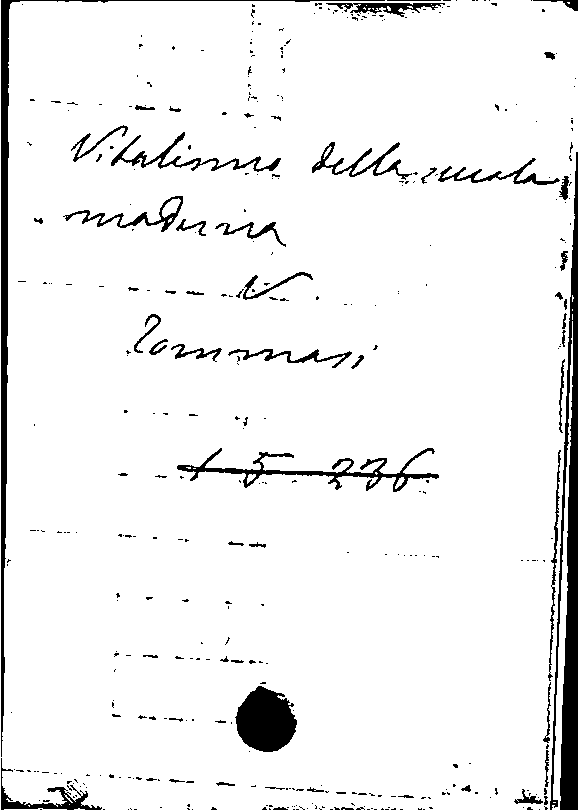 Vitalismo della scuola
moderna
V.
Tommasi
1 5 236